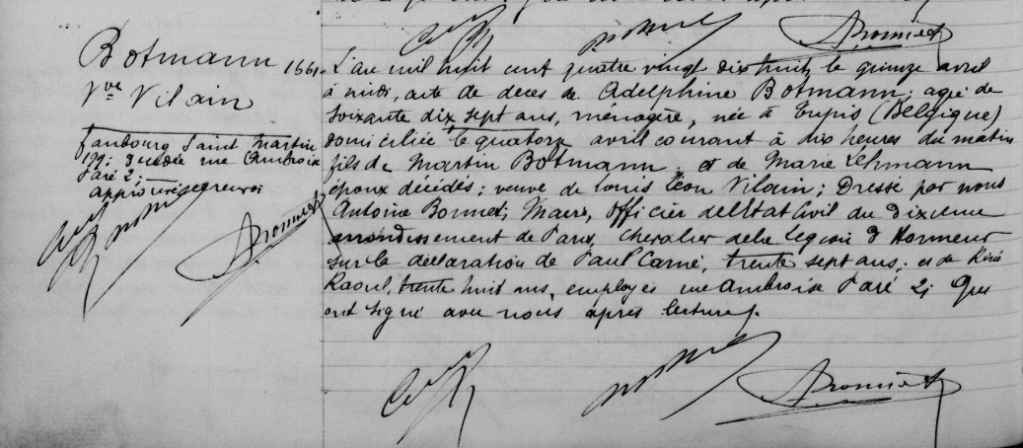 Botmann 1661.
Vve Vilain
faubourg Saint Martin
décédée rue Ambroise
Paré 2;
L'an mil huit cent quatre vingt dix huit, le quinze avril
à midi, acte de décès de Adelphine Botmann; agée de
soixante dix sept ans, ménagère, née à (Belgique)
domiciliée le quatorze avril courant à dix heures du matin
fils de Martin Botmann et de Marie Lehmann
époux décédés; veuve de Louis Léon Vilain; Dressé par nous
Antoine Bonnet, Maire, officier de l'Etat Civil du dixième
arrondissement de Paris, Chevalier de la Légion d'Honneur
sur la déclaration de Paul Carné, trente sept ans; et de
Raoul, trente huit ans, employés rue Ambroise Paré 2; Qui
ont signé avec nous après lecture.